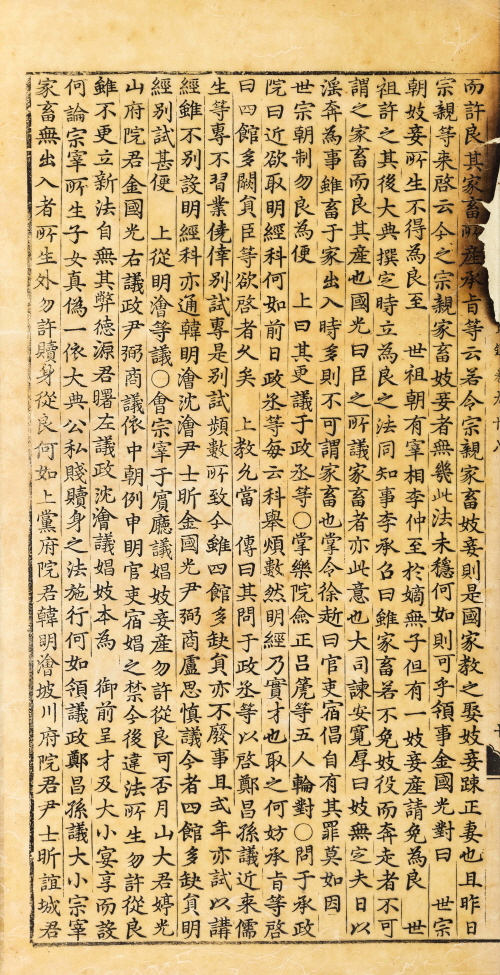 而許良其家畜所産承旨等云若令宗親家畜妓妾則是國家教之娶妓妾疎正妻也且昨日
宗親等來啓云今之宗親家畜妓妾者無幾此法未穩何如則可乎領事金國光對曰 世宗
朝妓妾所生不得為良至 世祖朝有宰相李仲至於嫡無子但有一妓妾産請免為良 世
祖許之其後大典撰定時立為良之法同知事李承召曰雖家畜若不免妓役而奔走者不可
謂之家畜而良其産也國光曰臣之所議家畜者亦此意也大司諫安寬厚曰妓無定夫日以
淫奔為事雖畜于家出入時多則不可謂家畜也掌令徐赾曰官吏宿倡自有其罪莫如因
世宗朝制勿良為便 上曰其更議于政丞等○掌樂院僉正呂篪等五人輪對○問于承政
院曰近欲取明經科何如前日政丞等每云科舉煩數然明經乃實才也取之何妨承旨等啓
曰四館多闕員臣等欲啓者久矣 上教允當 傳曰其問于政丞等以啓鄭昌孫議近來儒
生等專不習業僥倖別試專是別試頻數所致今雖四館多缺員亦不廢事且式年亦試以講
經雖不別設明經科亦通韓明澮沈澮尹士昕金國光尹弼商盧思愼議今者四館多缺員明
經別試甚便 上從明澮等議○會宗宰于賓廳議娼妓妾産勿許從良可否月山大君婷光
山府院君金國光右議政尹弼商議依中朝例申明官吏宿娼之禁今後違法所生勿許從良
雖不更立新法自無其弊德源君曙左議政沈澮議娼妓本為 御前呈才及大小宴享而設
何論宗宰所生子女真偽一依大典公私賤贖身之法施行何如領議政鄭昌孫議大小宗宰
家畜無出入者所生外勿許贖身從良何如上黨府院君韓明澮坡川府院君尹士昕誼城君